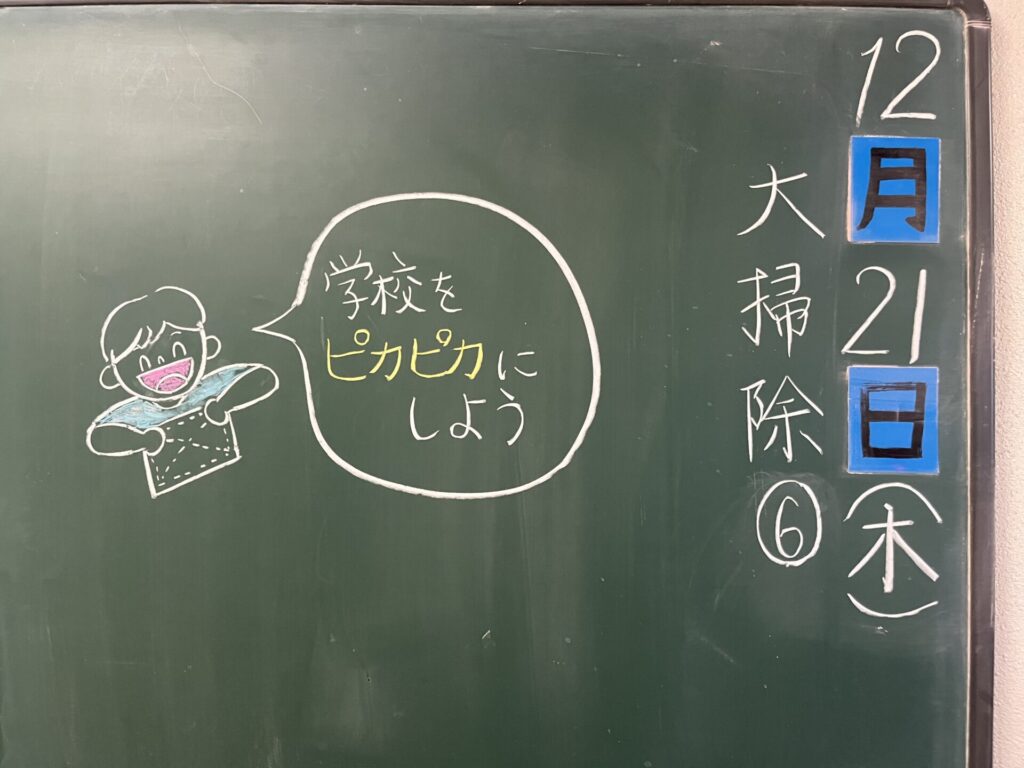 12月21日(木)
大掃除⑥
学校を
ピカピカに
しよう